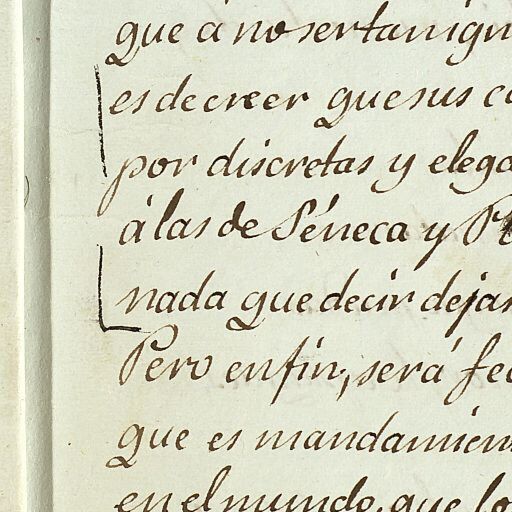 que á no ser tan ign
es de creer que sus c
por discretas y elega
á las de Séneca y P
nada que decir dejar
Pero en fin, será fe
que es mandamien
en el mundo, que lo